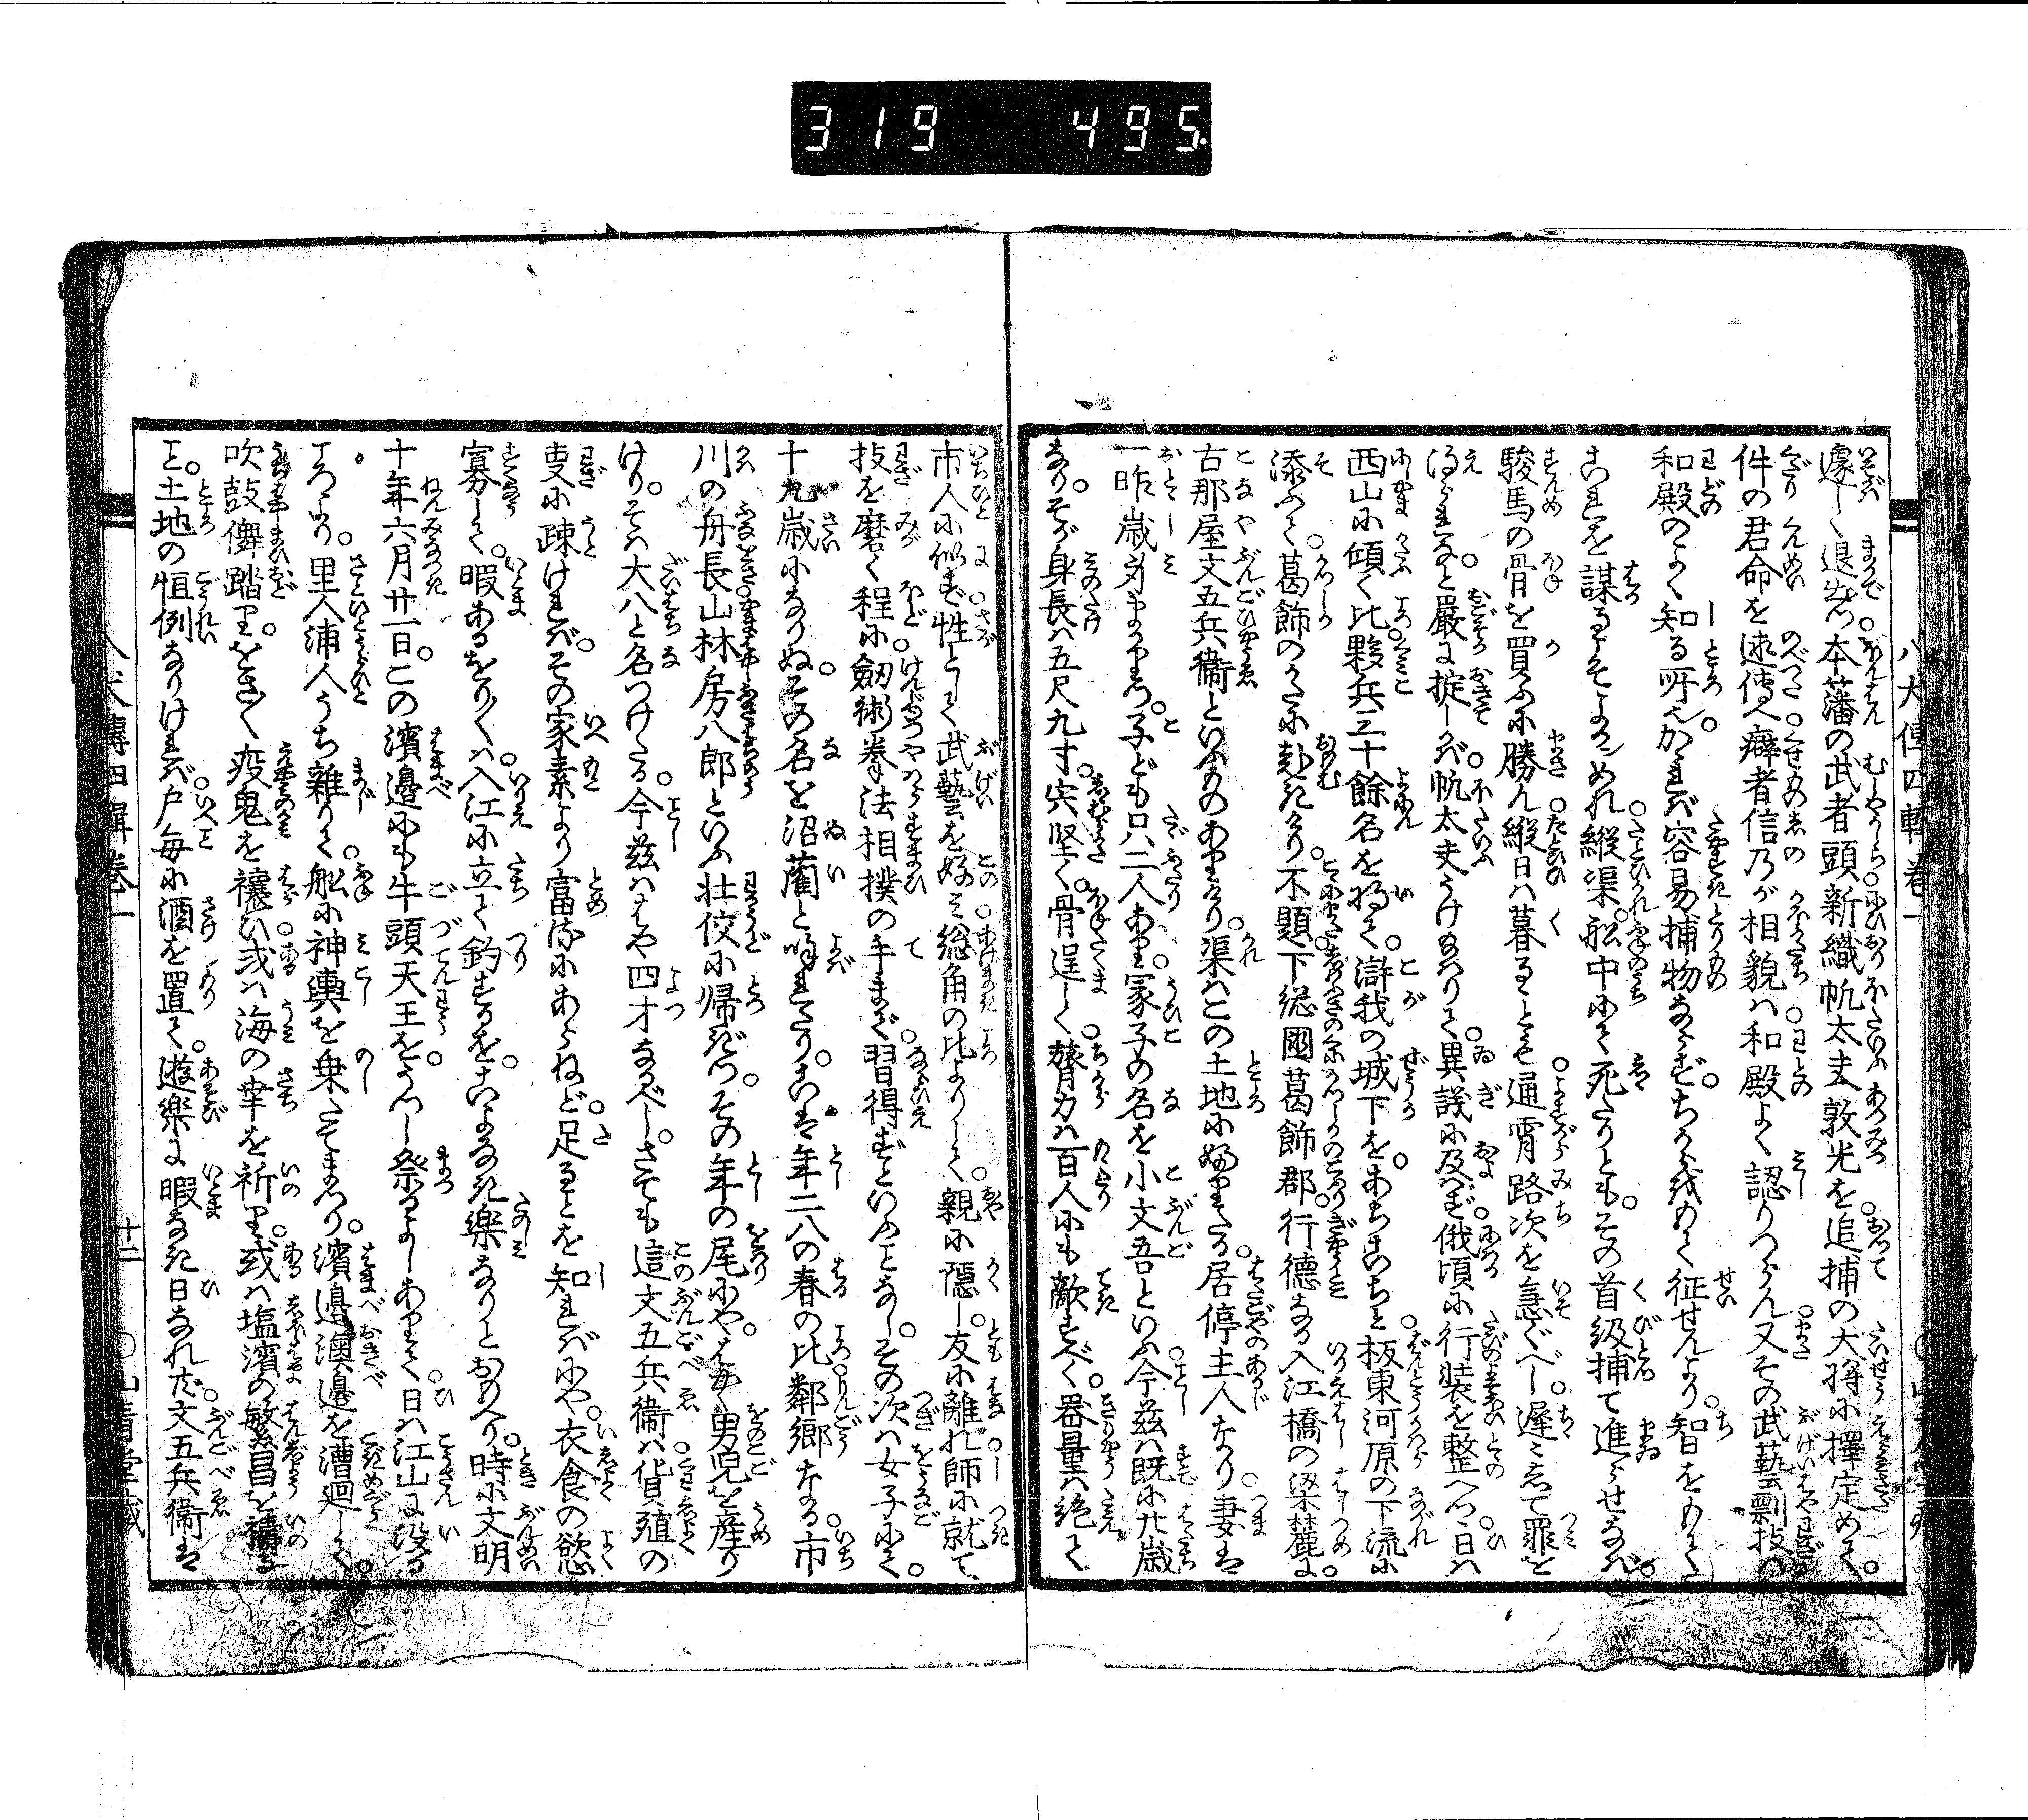 319 495
八犬傳四輯卷一
遽しく退出。本藩の武者頭新織帆太夫敦光を追捕の大将に擇定めて。
件の君命を述傳へ癖者信乃が相貌は和殿よく認りつらん又その武藝剽技は
和殿のよく知る所。かゝれば容易捕物ならず。ちからをもて征せんより。智をもて
これを謀るこそよからめれ縦渠舩中にて死たりとも。その首級捕て進らせなば。
駿馬の骨を買ふに勝ん縦日は暮るゝとも通宵路次を急ぐべし遅々して罪を
得られなと嚴に掟しかば帆太夫うけ給はりて。異議に及ばず俄頃に行装を整へつ日は
西山に傾く比夥兵三十餘名を将て。滸我の城下を。あちこちと板東河原の下流に
添ふて葛飾のかたに赴きけり。不題下総國葛飾郡。行德なる入江橋の梁麓に。
古那屋文五兵衞といふものありけり。渠はこの土地に婦りたる居停主人なり妻は
一昨歳身まかりつ。子どもは只二人あり冢子の名を小文吾といふ今茲は既に廿歳
なり。そが身長は五尺九寸。宍堅く。骨逞しく。膂力は百人にも敵すべく。器量は絶て
市人に似ず性として武藝を好み総角の比よりして。親に隠し。友に離れ師に就て
技を磨く程に。劔術拳法相撲の手まで。習得ずといふことなし。その次は女子にて。
十九歳になりぬ。その名を沼藺と喚れたり。こは年二八の春の比鄰郷なる市
川の舟長山林房八郎といふ壮佼に帰ぎつ。その年の尾にや。はやく男児を産り
けり。そは大八と名つけたる。今茲ははや四才なるべし。さても這文五兵衞は貨殖の
叓に疎ければ。その家素より富るにあらねど。足ることを知ればにや。衣食の慾
寡して。暇あるをりをりは。入江に立て釣するを。こよなき樂なりとおもへり。時に文明
十年六月廿一日。この濱邉にも牛頭天王をうつし祭るよしありて。日は江山に没る
ころより。里人浦人うち雑りて。舩に神輿を乗たてまつり。濱邉澳邉を漕廻して。
吹鼓儛踏り。をさをさ疫鬼を禳ひ或は海の幸を祈り。或は塩濱の繁昌を禱る
こと。土地の恒例なりければ。戸毎に酒を置て。遊樂に暇なき日なれど。文五兵衞は
八犬傳四輯卷一
十二
山青堂藏